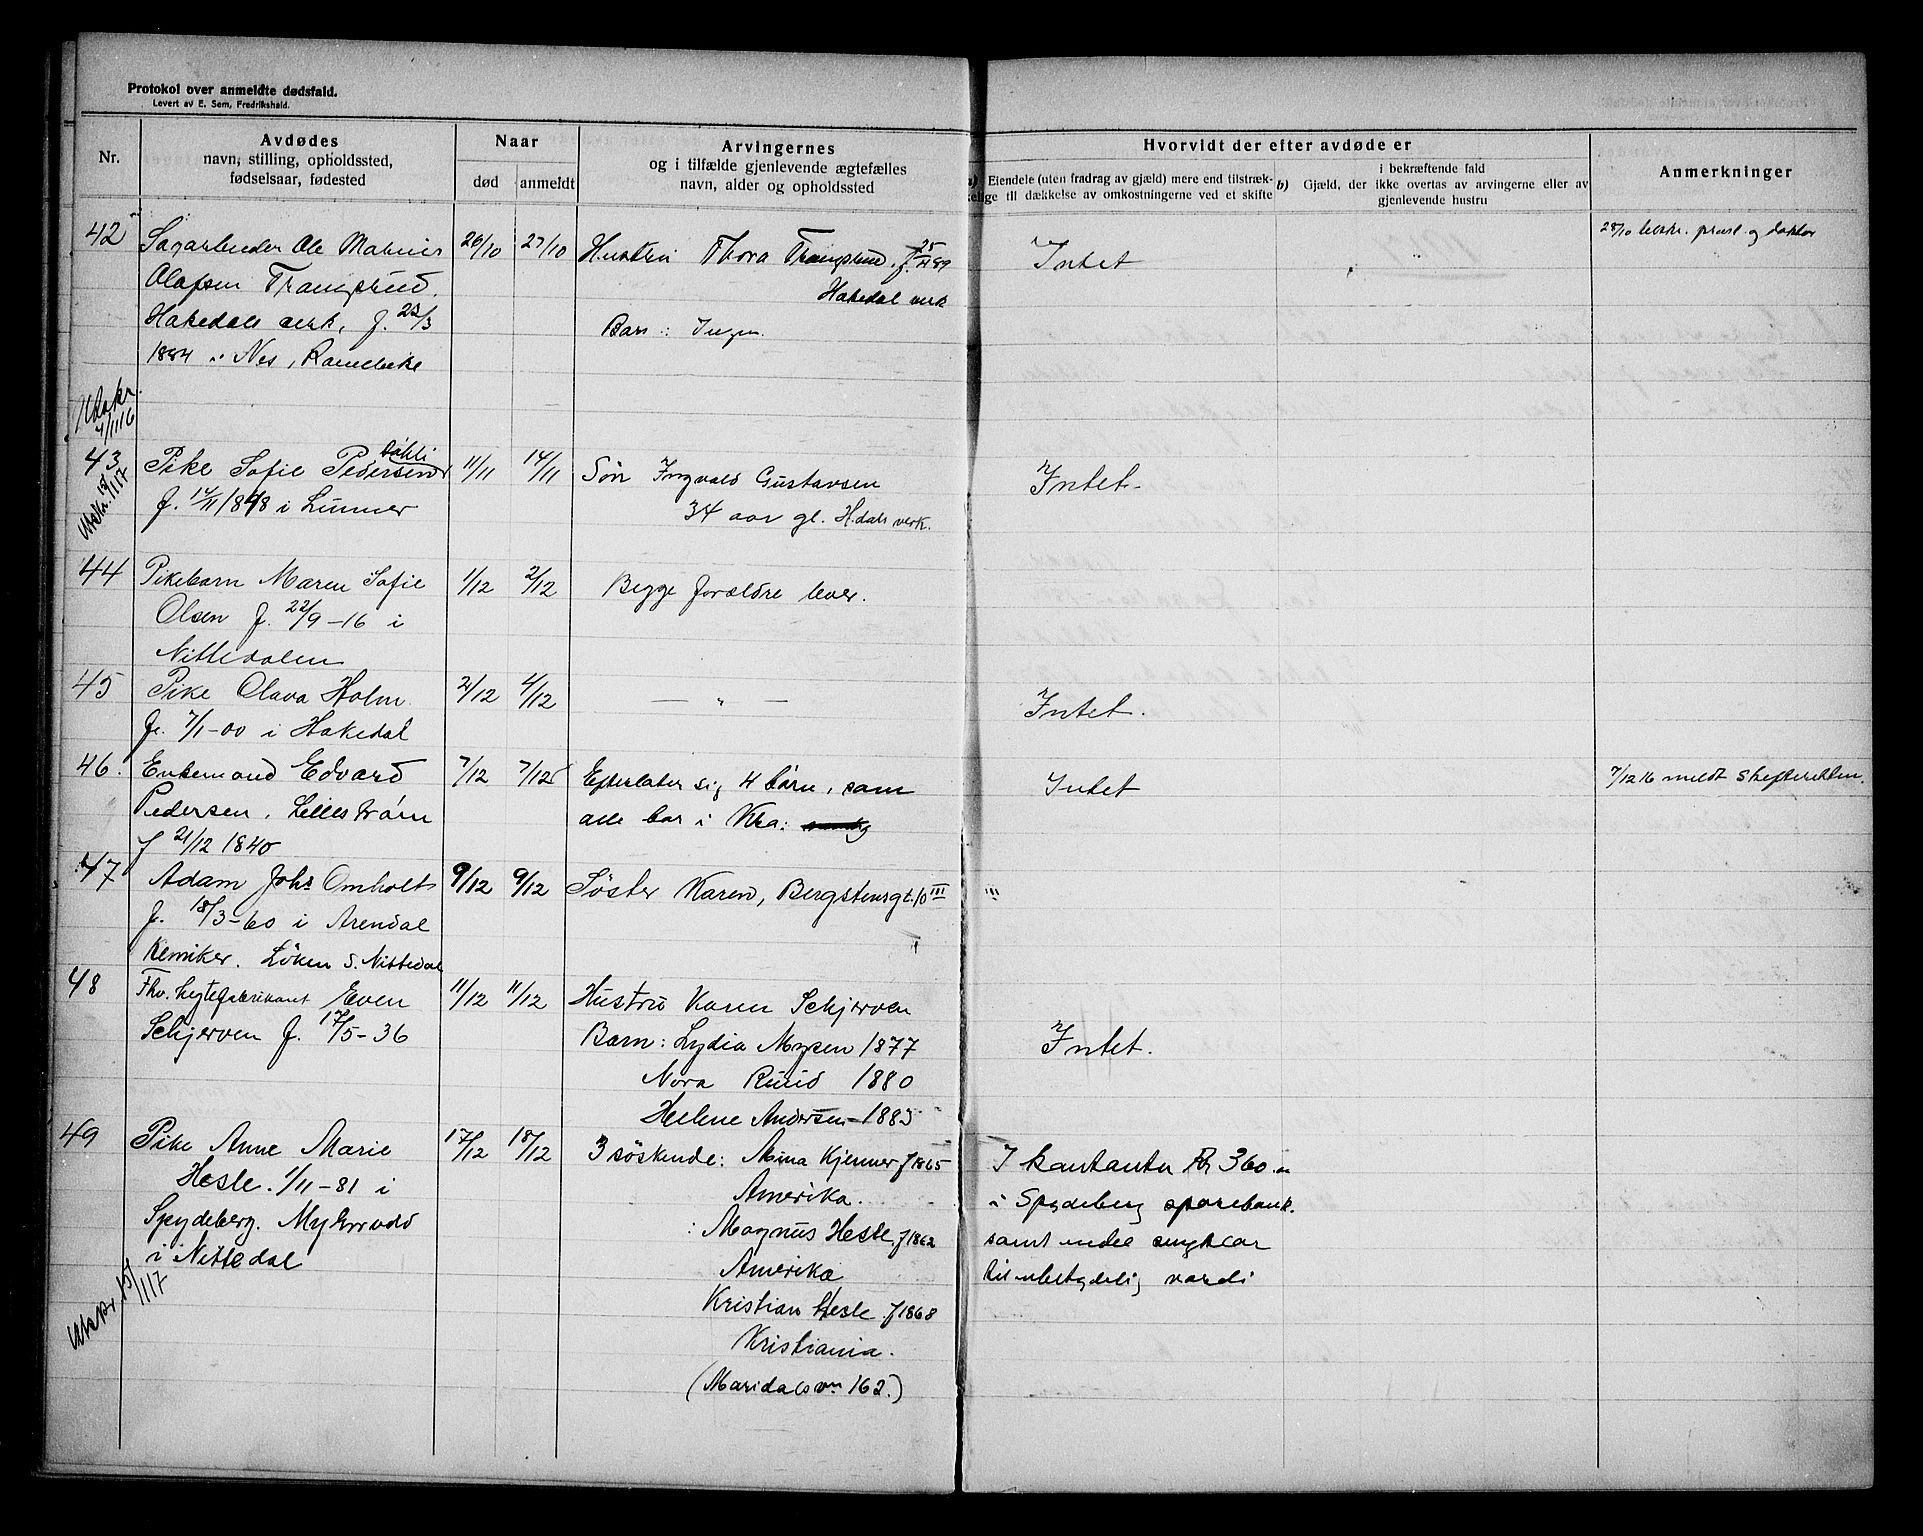 Protokol over anmeldte dødsfald.
Levert av E. Sem, Fredrikshald.
Nr.
Avdødes
navn, stilling, opholdssted,
fødselsaar, fødested
Naar
død
anmeldt
Arvingernes
og i tilfælde gjenlevende ægtefælles
navn, alder og opholdssted
Hvorvidt der efter avdøde er
Eiendele (uten fradrag av gjæld) mere end tilstræk-
kelige til dækkelse av omkostningerne ved et skifte
b) Gjæld, der
i bekræftende fald
ikke overtas av arvingerne eller av
gjenlevende hustru
Anmerkninger
42
Sagarbeider Ole
Olafsen
Hakedals verk, f. 22/3
1884 i Nes, Romerike
26/10
27/10
Hustru Thora f. 25/11 89
Hakedal verk
Barn: Ingen.
Intet
28/10 tilskr. præst og doktor
Utskr.
7/11 16
43
Pike Sofie Pedersen
Døhli
f. 14/11 1848 i Lunner
11/11
14/11
Søn Ingvald Gustavsen
34 aar gl. H.dals verk.
Intet.
Utskr. 15/1 17
44
Pikebarn Maren Sofie
Olsen f. 22/9 -16 i
Nittedalen
1/12
2/12
Begge forældre lever.
45
Pike Olava Holm
f. 7/1 -00 i Hakedal
2/12
4/12
— „ —
Intet.
46.
Enkemand Edvard
Pedersen, Lillestrøm
f 21/12 1840
7/12
7/12
Efterlater sig 4 børn, som
alle bor i Kra:
Intet
7/12 16 meldt Skifteretten.
47
Adam Johs Omholt
f. 18/3 -60 i Arendal
Kemiker. Løken S. Nittedal
9/12
9/12
Søster Karen, Bergstensgt. 10 III
48
Fhv. Lygtefabrikant Even
Schjerven f. 17/5 -36
11/12
11/12
Hustru Karen Schjerven
Barn: Lydia Mysen 1877
Nora Ruud 1880
Helene Andersen 1883
Intet.
49
Pike Anne Marie
Hesle. 1/11 -81 i
Spydeberg. Mykerud
i Nittedal
17/12
18/12
3 søskende: Mina Kjenner f 1865
Amerika.
: Magnus Hesle f 1862
Amerika
Kristian Hesle f 1868
Kristiania.
(Maridalsvn 162.)
I kontanter Kr 360.
i Spydeberg sparebank.
samt endel smykker
til ubetydelig værdi
Utskr. 15/1 17